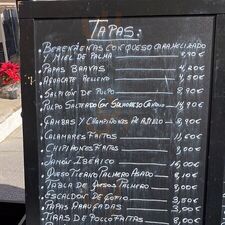 TAPAS:
BERENJENAS CON QUESO CARAMELIZADO
Y MIEL DE PALMA 8,90€
PAPAS BRAVAS 4,20€
AGUACATE RELLENO 4,50€
SALPICÓN DE PULPO 8,90€
PULPO SALTEADO CON 14,90€
GAMBAS Y CHAMPIÑONES AL AJILLO 8,90€
CALAMARES FRITOS 11,50€
CHIPIRONES FRITOS 8,00€
JAMÓN IBÉRICO 16,00€
QUESO TIERNO PALMERO ASADO 8,10€
TABLA DE QUESOS PALMERO 8,00€
ESCALDÓN DE GOFIO 3,50€
PAPAS ARRUGADAS 3,50€
TIRAS DE POLLO FRITAS 8,00€